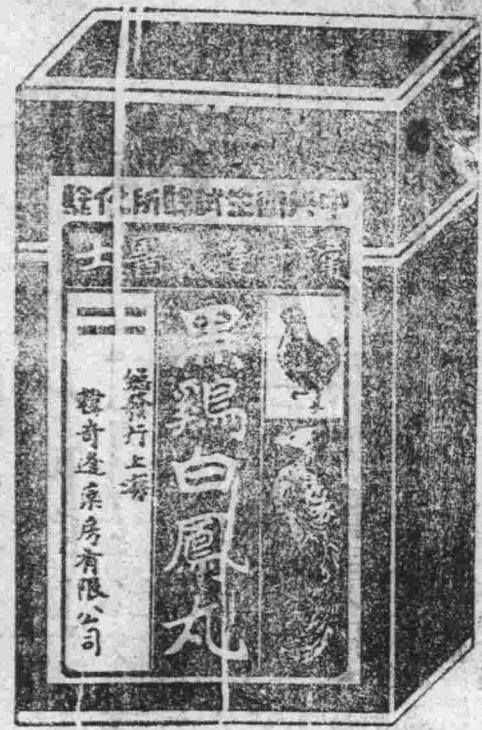 中央衛生試驗所化驗
韓奇逢醫士
黑鷄白鳳丸
總發行上海
韓奇逢藥房有限公司